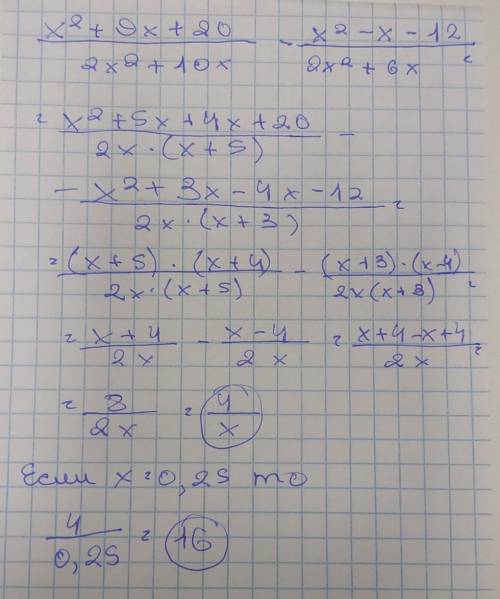 (x² + 9x + 20)/(2x² + 10x) - (x² - x - 12)/(2x² + 6x) =
= (x² + 5x + 4x + 20)/(2x · (x + 5)) -
- (x² + 3x - 4x - 12)/(2x · (x + 3)) =
= ((x + 5) · (x + 4))/(2x · (x + 5)) - ((x + 3) · (x - 4))/(2x(x + 3)) =
= (x + 4)/(2x) - (x - 4)/(2x) = (x + 4 - x + 4)/(2x) =
= 8/(2x) = 4/x
Если x = 0,25 то
4/(0,25) = 16